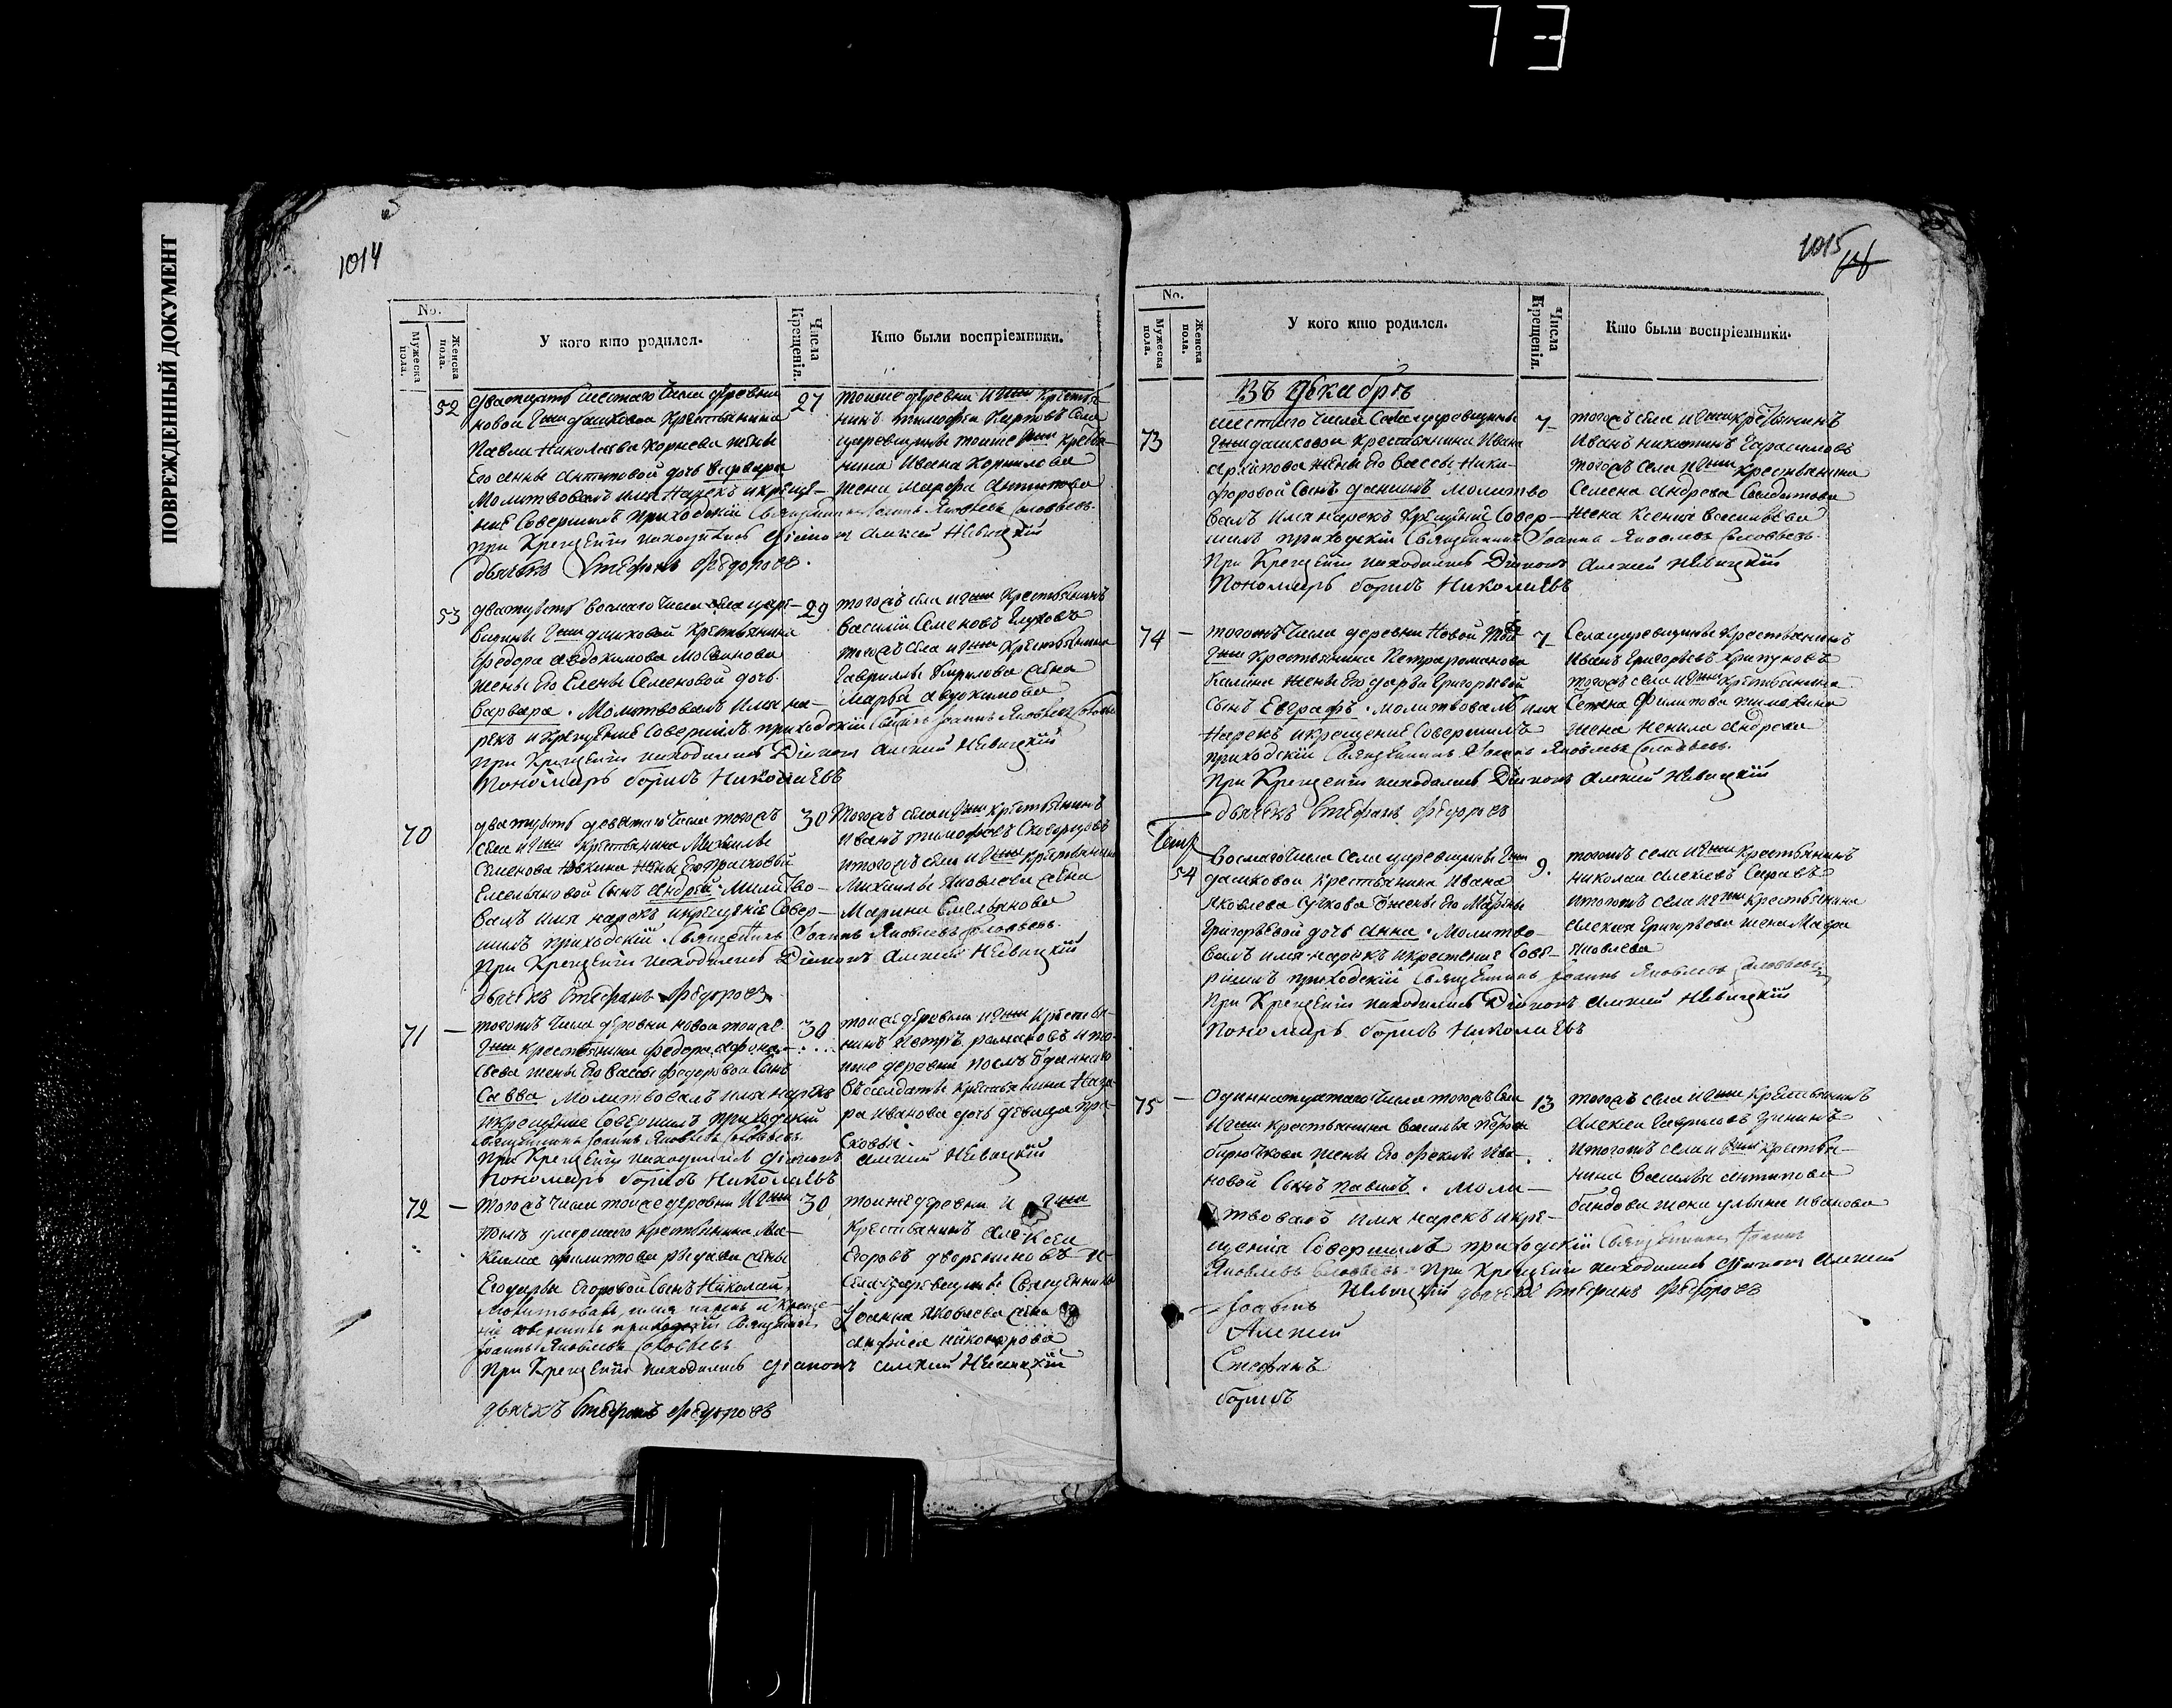 73
ПОВРЕЖДЕННЫЙ ДОКУМЕНТ
1014
No.
Мужеска пола.
Женска пола.
У кого кто родился.
Числа Крещенія.
Кто были воспріемники.
52
дватцать шестаго числа деревни
новой Гжи дашковой Крестьянина
Павла Николаева Корнева жены
Его анны антиповой дочь варвара
Молитвовалъ имя Нарекъ и креще-
ніе Совершилъ приходскій Священникъ Іоаннъ Яковлевъ Соловьевъ.
при Крещеніи находились діаконъ алексей Невицкій
дьячекъ Стефанъ Федоровъ.
27
тоиже деревни и Гжи Крестья-
нинъ тимофей Карповъ Села
царевщины тоиже Гжи Крестья-
нина Ивана Корнилова
жена марфа антипова
53
дватцать восмаго числа села царе-
вщины Гжи дашковой Крестьянина
Федора авдокимова
жены Его Елены Семеновой дочь
варвара. Молитвовалъ имя на-
рекъ и крещеніе Совершилъ приходскій Священ Іоаннъ Яковлевъ Соловье
при Крещеніи находились Діаконъ алексей Невицкій
Пономарь борисъ Николаевъ
29
тогожъ села и Гжи Крестьянинъ
василій Семеновъ Глуховъ
тогожъ села и Гжи Крестьянина
Гаврилы Кирилова жена
марфа авдокимова
70
дватцать девятаго числа тогожъ
села и Гжи Крестьянина Михаилы
Семенова жены Его Прасковьи
Емельяновой Сынъ андрей. Молитво-
валъ имя нарекъ и крещеніе Совер-
шилъ приходскій Священникъ Іоаннъ Яковлевъ Соловьевъ.
при Крещеніи находились Діаконъ алексей Невицкій
дьячекъ Стефанъ Федоровъ
30
Тогожъ села и Гжи крестьянинъ
Иванъ тимофеевъ Скворцовъ
и тогожъ села и Гжи Крестьянина
Михаилы Яковлева жена
Марина Емельянова
71
тогожъ числа деревни новой тоиже
Гжи крестьянина Федора афона-
сьева жены Его вассы федоровой Сынъ
Савва Молитвовалъ имя нарекъ
и крещеніе Совершилъ приходскій
Священникъ Іоаннъ Яковлевъ Соловьевъ.
При Крещеніи находились діаконъ алексей Невицкій
Пономарь борисъ Николаевъ
30
тоиже деревни и Гжи Крестья-
нинъ Петръ романовъ и то-
иже деревни
крестьянина Наза-
ра Иванова дочь девица пра-
сковья.
72
тогожъ числа тоиже деревни и Гжи
умершаго крестьянина Ма-
ксима филипова жены
Его дарьи Егоровой Сынъ Николай,
Молитвовалъ, имя нарекъ и Креще-
ніе совершилъ приходскій Священникъ
Іоаннъ Яковлевъ Соловьевъ
при Крещеніи находились діаконъ алексей Невицкій
дьячекъ Стефанъ Федоровъ
30
тоиже деревни и Гжи
Крестьянинъ алексей
Егоровъ дворениновъ и
Села царевщины Священника
Іоанна Яковлева жена
анфиса никонорова
1015
No.
Мужеска пола.
Женска пола.
У кого кто родился.
Числа Крещенія.
Кто были воспріемники.
Въ декабрѣ
73
шестаго числа Села царевщины
Гжи дашковой Крестьянина Ивана
архипова жены Его вассы Ники-
форовой Сынъ данилъ молитво
валъ имя нарекъ Крещеніе Совер-
шилъ приходскій Священникъ Іоаннъ Яковлевъ Соловьевъ.
При Крещеніи находились Діаконъ алексей Невицкій
Пономарь борисъ Николаевъ
7
тогожъ села и Гжи Крестьянинъ
Иванъ никитинъ Гарасимовъ
тогожъ села и Гжи Крестьянина
Семена андреева
жена Ксения васильева
74
тогожъ числа деревни Новой тоиже
Гжи Крестьянина Петра романова
жены Его дарьи Григорьевой
Сынъ Евграфъ. молитвовалъ имя
Нарекъ и крещеніе Совершилъ
приходскій Священникъ Іоаннъ Яковлевъ Соловьевъ.
при Крещеніи находились Діаконъ алексей Невицкій
дьячекъ Стефанъ Федоровъ
7
Села царевщины Крестьянинъ
Иванъ Григорьевъ Хрипуновъ
тогожъ села и Гжи Крестьянина
Степана филипова
жена Ненила андреева
54
Восмаго числа села царевщины Гжи
дашковой Крестьянина Ивана
Яковлева Сучкова жены Его Марьи
Григорьевой дочь анна. Молитво-
валъ имя нарекъ и крещеніе Сове-
ршилъ приходскій Священникъ Іоаннъ Яковлевъ Соловьевъ
при Крещеніи находились Діаконъ алексей Невицкій
Пономарь борисъ Николаевъ
9.
тогожъ села и Гжи Крестьянинъ
николай алексеевъ
и тогожъ села и Гжи Крестьянина
алексея Григорьева жена Марфа
Яковлева
75
Одиннатцатаго числа тогожъ села
и Гжи крестьянина василья
бирючкова жены Его феклы Ива-
новой Сынъ павелъ. моли-
твовалъ имя нарекъ и кре-
щеніе Совершилъ приходскій Священникъ Іоаннъ
Яковлевъ Соловьевъ. При Крещеніи находились діаконъ алексей
Невицкій дьячекъ Стефанъ Федоровъ
13
тогожъ села и Гжи Крестьянинъ
алексей Гавриловъ
и тогожъ села и Гжи крестья-
нина василья антипова
жена ульяна иванова
Іоаннъ
Алексей
Стефанъ
борисъ